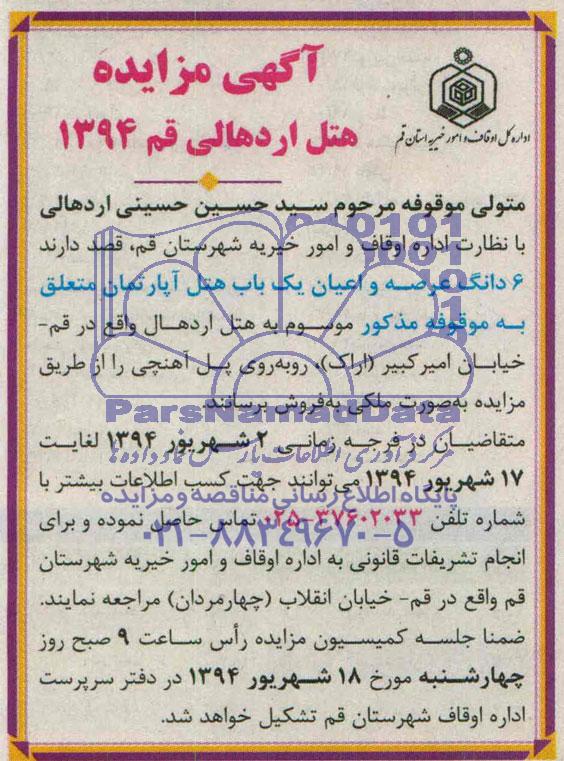 آگهی مزایده
هتل اردهالی قم ۱۳۹۴
اداره کل اوقاف و امور خیریه استان قم
متولی موقوفه مرحوم سید حسین حسینی اردهالی
با نظارت اداره اوقاف و امور خیریه شهرستان قم، قصد دارند
۶ دانگ عرصه و اعیان یک باب هتل آپارتمان متعلق
به موقوفه مذکور موسوم به هتل اردهال واقع در قم-
خیابان امیرکبیر (اراک)، روبه‌روی پل آهنچی را از طریق
مزایده به‌صورت ملکی به‌فروش برسانند.
ParsNamadData
متقاضیان در فرجه زمانی ۲ شهریور ۱۳۹۴ لغایت
مرکز فرآوری اطلاعات پارس نماد داده‌ها
۱۷ شهریور ۱۳۹۴ می‌توانند جهت کسب اطلاعات بیشتر با
پایگاه اطلاع رسانی مناقصه و مزایده
شماره تلفن ۳۷۶۰۲۰۳۳-۰۲۵ تماس حاصل نموده و برای
۰۲۱-۸۸۳۴۹۶۷۰-۵
انجام تشریفات قانونی به اداره اوقاف و امور خیریه شهرستان
قم واقع در قم- خیابان انقلاب (چهارمردان) مراجعه نمایند.
ضمنا جلسه کمیسیون مزایده رأس ساعت ۹ صبح روز
چهارشنبه مورخ ۱۸ شهریور ۱۳۹۴ در دفتر سرپرست
اداره اوقاف شهرستان قم تشکیل خواهد شد.